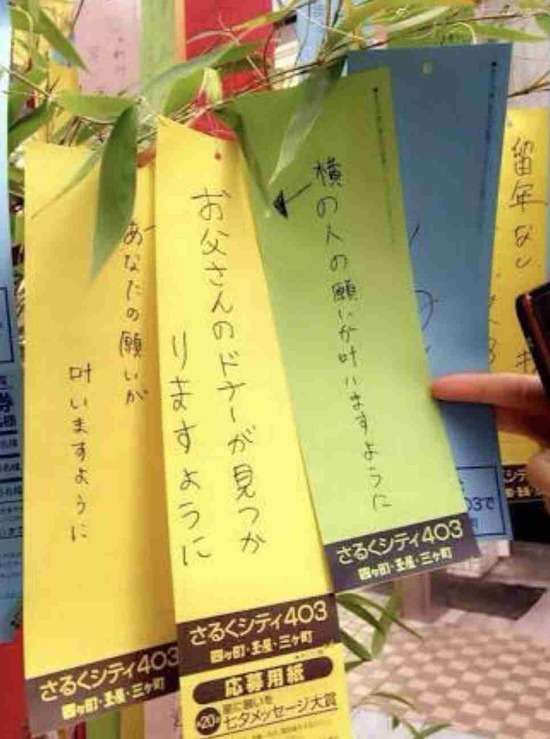 横の人の願いが叶いますように
さるくシティ403
四ヶ町・玉屋・三ヶ町
お父さんのドナーが見つか
りますように
さるくシティ403
四ヶ町・玉屋・三ヶ町
応募用紙
星に願いを
第20回
七夕メッセージ大賞
あなたの願いが
叶いますように
さるくシティ403
四ヶ町・玉屋・三ヶ町
留年なし